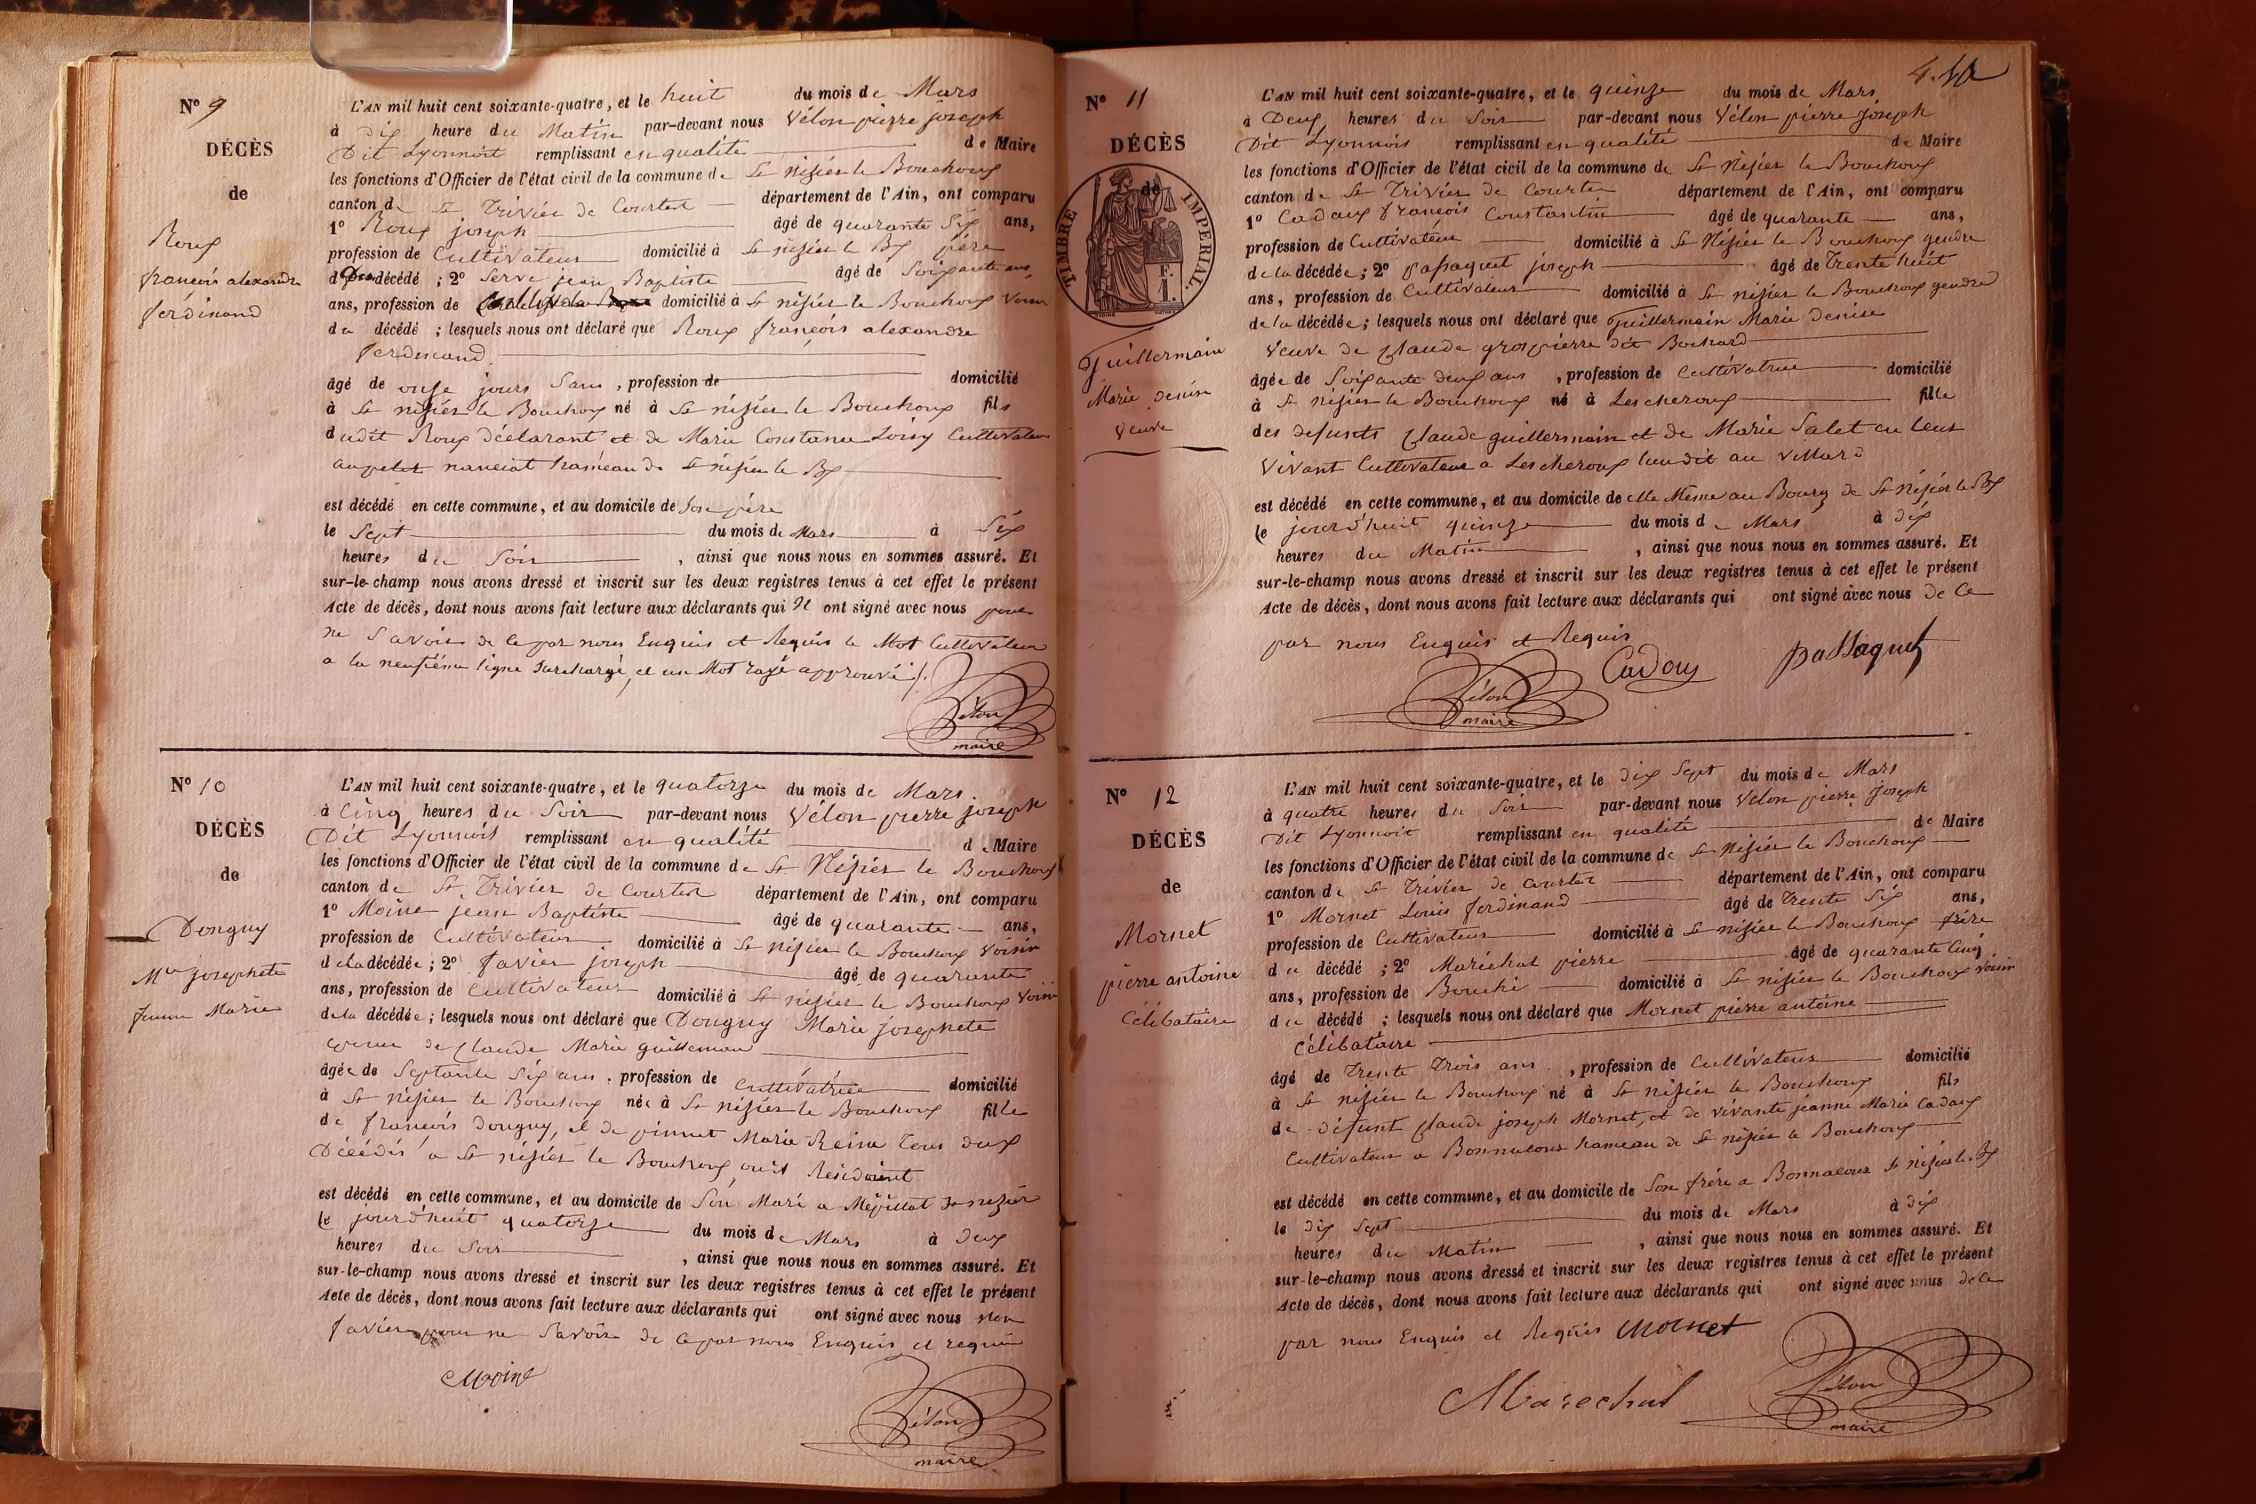 N° 9
DÉCÈS
de
Roux
françois alexandre
ferdinand
L'AN mil huit cent soixante-quatre, et le huit du mois de Mars
à dix heure du Matin par-devant nous Vélon pierre joseph
Dit Lyonnois remplissant en qualité de Maire
les fonctions d'Officier de l'état civil de la commune de St nizier le Bouchoux
canton de St Trivier de Courtes département de l'Ain, ont comparu
1° Roux joseph âgé de quarante Six ans,
profession de Cultivateur domicilié à St nizier le Bx père
du décédé ; 2° Serve jean Baptiste âgé de Soixante ans
ans, profession de domicilié à St nizier le Bouchoux Voisin
du décédé ; lesquels nous ont déclaré que Roux françois alexandre
ferdinand
âgé de onze jours Sans , profession de domicilié
à St nizier le Bouchoux né à St nizier le Bouchoux fils
dudit Roux déclarant et de Marie Constance Loisy Cultivateurs
au hameau de St nizier le Bx
est décédé en cette commune, et au domicile de Son père
le Sept du mois de Mars à Six
heures du Soir , ainsi que nous nous en sommes assuré. Et
sur-le-champ nous avons dressé et inscrit sur les deux registres tenus à cet effet le présent
Acte de décès, dont nous avons fait lecture aux déclarants qui N ont signé avec nous pour
ne Savoir de ce par nous Enquis et Requis le Mot Cultivateur
a la neufième ligne Surchargé, et un Mot rayé approuvé ./.
Vélon
maire
N° 10
DÉCÈS
de
Donguy
Mie josephete
femme Marie
L'AN mil huit cent soixante-quatre, et le quatorze du mois de Mars.
à Cinq heures du Soir par-devant nous Vélon pierre joseph
Dit Lyonnois remplissant en qualité de Maire
les fonctions d'Officier de l'état civil de la commune de St Nizier le Bouchoux
canton de St Trivier de Courtes département de l'Ain, ont comparu
1° Moine jean Baptiste âgé de quarante ans,
profession de Cultivateur domicilié à St nizier le Bouchoux Voisin
de la décédée ; 2° favier joseph âgé de quarante
ans, profession de Cultivateur domicilié à St nizier le Bouchoux Voisin
de la décédée ; lesquels nous ont déclaré que Donguy Marie josephete
de Claude Marie guillemin
âgée de Septante Six ans , profession de Cultivatrice domicilié
à St nizier le Bouchoux née à St nizier le Bouchoux fille
de françois donguy, et de pinnet Marie Reine tous deux
Décédés a St nizier le Bouchoux, ou ils Résidaient
est décédé en cette commune, et au domicile de Son Mari a Mézillat St nizier
le jourd'huit quatorze du mois de Mars à Deux
heures du Soir , ainsi que nous nous en sommes assuré. Et
sur-le-champ nous avons dressé et inscrit sur les deux registres tenus à cet effet le présent
Acte de décès, dont nous avons fait lecture aux déclarants qui ont signé avec nous non
favier pour ne Savoir de ce par nous Enquis et requis
Moine
Vélon
maire
4.
N° 11
DÉCÈS
de
TIMBRE IMPERIAL.
F.
1.
Guillermain
Marie denise
veuve
L'AN mil huit cent soixante-quatre, et le quinze du mois de Mars
à Deux heures du Soir par-devant nous Vélon pierre joseph
Dit Lyonnois remplissant en qualité de Maire
les fonctions d'Officier de l'état cicil de la commune de St Nizier le Bouchoux
canton de St Trivier de Courtes département de l'Ain, ont comparu
1° Cadoux françois Constantin âgé de quarante ans,
profession de Cultivateur domicilié à St Nizier le Bouchoux gendre
de la décédée ; 2° passaquet joseph âgé de Trente huit
ans, profession de Cultivateur domicilié à St nizier le Bouchoux gendre
de la décédée ; lesquels nous ont déclaré que Guillermain Marie denise
Veuve de Claude grospierre dit Bochard
âgée de Soixante deux ans , profession de Cultivatrice domicilié
à St nizier le Bouchoux né à Lescheroux fille
des defunts Claude guillermain et de Marie Salet en leur
vivant Cultivateur a Lescheroux lieu dit au Villard
est décédé en cette commune, et au domicile de elle Même au Bourg de St Nizier le Bx
le jourd'huit quinze du mois de Mars à dix
heures du Matin , ainsi que nous nous en sommes assuré. Et
sur-le-champ nous avons dressé et inscrit sur les deux registres tenus à cet effet le présent
Acte de décès, dont nous avons fait lecture aux déclarants qui ont signé avec nous de Ce
par nous Enquis et Requis
Cadoux passaquet
Vélon
maire
N° 12
DÉCÈS
de
Mornet
pierre antoine
Célibataire
L'AN mil huit cent soixante-quatre, et le dix Sept du mois de Mars
à quatre heures du Soir par-devant nous Vélon pierre joseph
Dit Lyonnois remplissant en qualité de Maire
les fonctions d'Officier de l'état civil de la commune de St Nizier le Bouchoux
canton de St Trivier de Courtes département de l'Ain, ont comparu
1° Mornet Louis ferdinand âgé de Trente Six ans,
profession de Cultivateur domicilié à St nizier le Bouchoux frère
du décédé ; 2° Maréchal pierre âgé de quarante Cinq
ans, profession de Bouché domicilié à St nizier le Bouchoux Voisin
du décédé ; lesquels nous ont déclaré que Mornet pierre antoine
Célibataire
âgé de Trente Trois ans , profession de Cultivateur domicilié
à St nizier le Bouchoux né à St nizier le Bouchoux fils
de défunt Claude joseph Mornet, et de vivante jeanne Marie Cadoux
Cultivateur a Bonnalous hameau de St nizier le Bouchoux
est décédé en cette commune, et au domicile de Son frère a Bonnalous St nizier le Bx
le dix Sept du mois de Mars à dix
heures du Matin , ainsi que nous nous en sommes assuré. Et
sur-le-champ nous avons dressé et inscrit sur les deux registres tenus à cet effet le présent
Acte de décès, dont nous avons fait lecture aux déclarants qui ont signé avec nous de Ce
par nous Enquis et Requis Mornet
Marechal
Vélon
maire